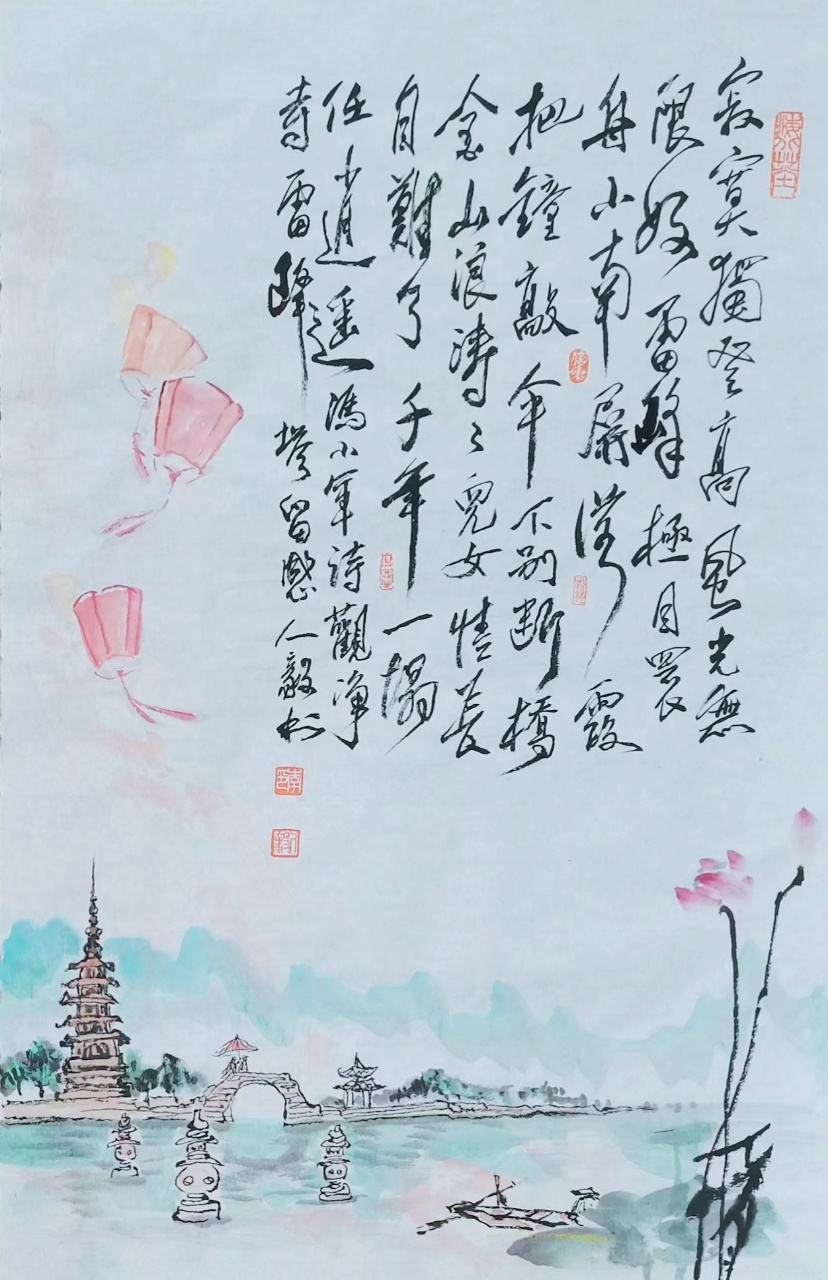 寂寞獨登高風光無
限好雷峰極目
舟小南屏霞
把鐘敲傘下別斷橋
金山浪濤々兒女情長
自難了千年一場
任逍遥馮小軍詩觀淨
寺雷峰塔留感人毅書